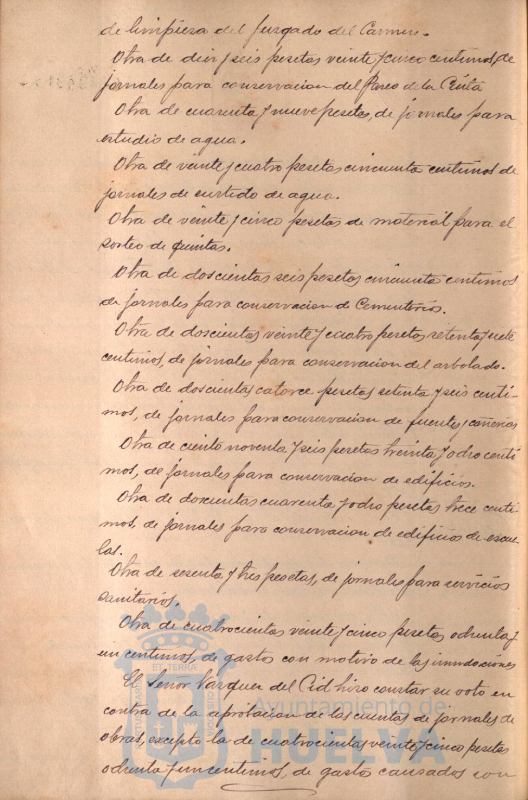 de limpieza del Juzgado del Carmen.
Otra de diez y seis pesetas veinte y cinco centimos, de
jornales para conservacion del Paseo de la Cinta
Otra de cuarenta y nueve pesetas, de jornales para
estudio de agua.
Otra de veinte y cuatro pesetas cincuenta centimos de
jornales de surtido de agua.
Otra de veinte y cinco pesetas de material para el
sorteo de quintas.
Otra de doscientas seis pesetas cincuenta centimos
de jornales para conservacion de Cementerios.
Otra de doscientas veinte y cuatro pesetas setenta y siete
centimos, de jornales para conservacion del arbolado.
Otra de doscientas catorce pesetas setenta y seis centi-
mos, de jornales para conservacion de fuentes y cañerias
Otra de ciento noventa y seis pesetas treinta y ocho centi
mos, de jornales para conservacion de edificios.
Otra de doscientas cuarenta y ocho pesetas trece centi
mos, de jornales para conservacion de edificios de escue
las.
Otra de sesenta y tres pesetas, de jornales para servicios
sanitarios.
Otra de cuatrocientas veinte y cinco pesetas ochenta y
un centimos, de gastos con motivo de las inundaciones
El Señor Vazquez del Cid hizo constar su voto en
contra de la aprobacion de las cuentas de jornales de
obras, excepto la de cuatrocientas veinte y cinco pesetas
ochenta y un centimos, de gastos causados con
Ayuntamiento de
HUELVA